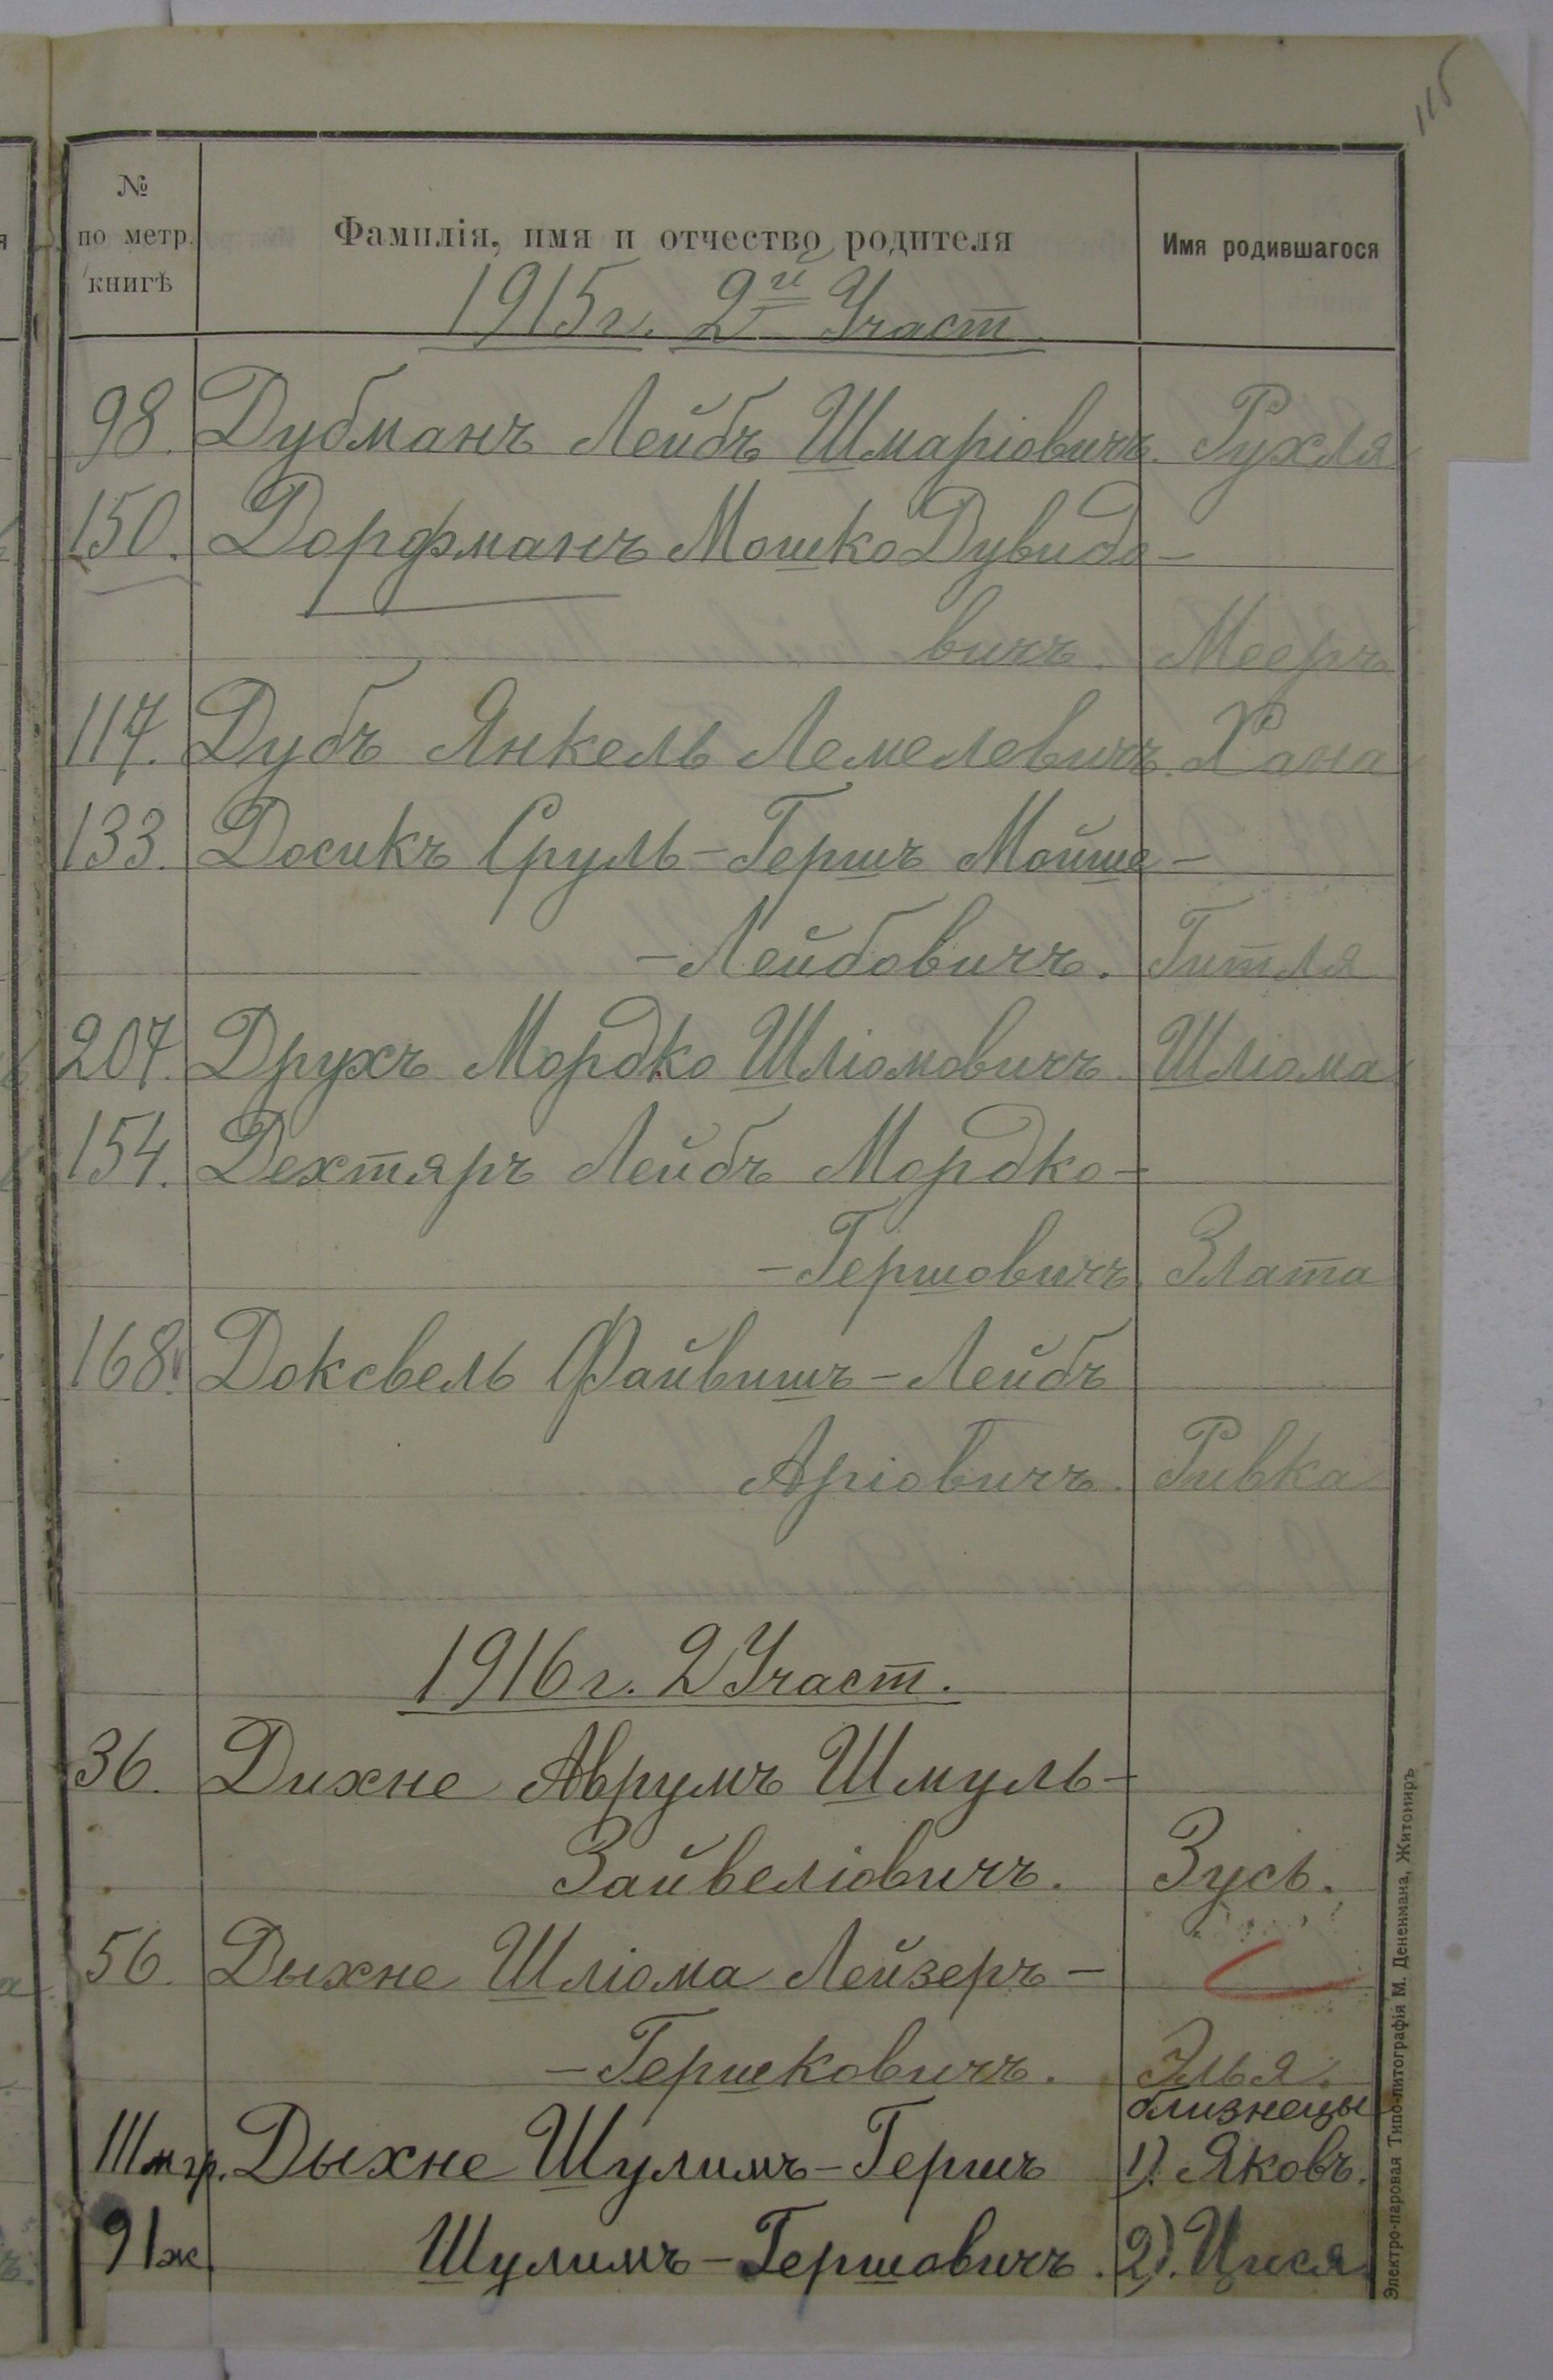 115
№ по метр. книгѣ
Фамилія, имя и отчество родителя
Имя родившагося
1915 г. 2й Участ.
98. Дубманъ Лейбъ Шмаріовичъ. Рухля
150. Дорфманъ Мошко Дувидо-
вичъ. Мееръ
117. Дубъ Янкель Лемелевичъ. Хана
133. Досикъ Сруль-Гершъ Мойше-
-Лейбовичъ. Гитля
207. Друхъ Мордко Шліомовичъ. Шліома
154. Дехтяръ Лейбъ Мордко-
-Гершовичъ. Злата
168. Доксвель Файвишъ-Лейбъ
Аріовичъ. Ривка
1916 г. 2 Участ.
36. Дихне Аврумъ Шмуль-
Зайвеліовичъ. Зусь.
56. Дыхне Шліома Лейзеръ-
-Гершковичъ. Элья.
близнецы
111 м гр. Дыхне Шулимъ-Гершъ 1). Яковъ.
91 ж Шулимъ-Гершовичъ. 2). Цися.
Электро-паровая Типо-литографія М. Дененмана, Житомиръ